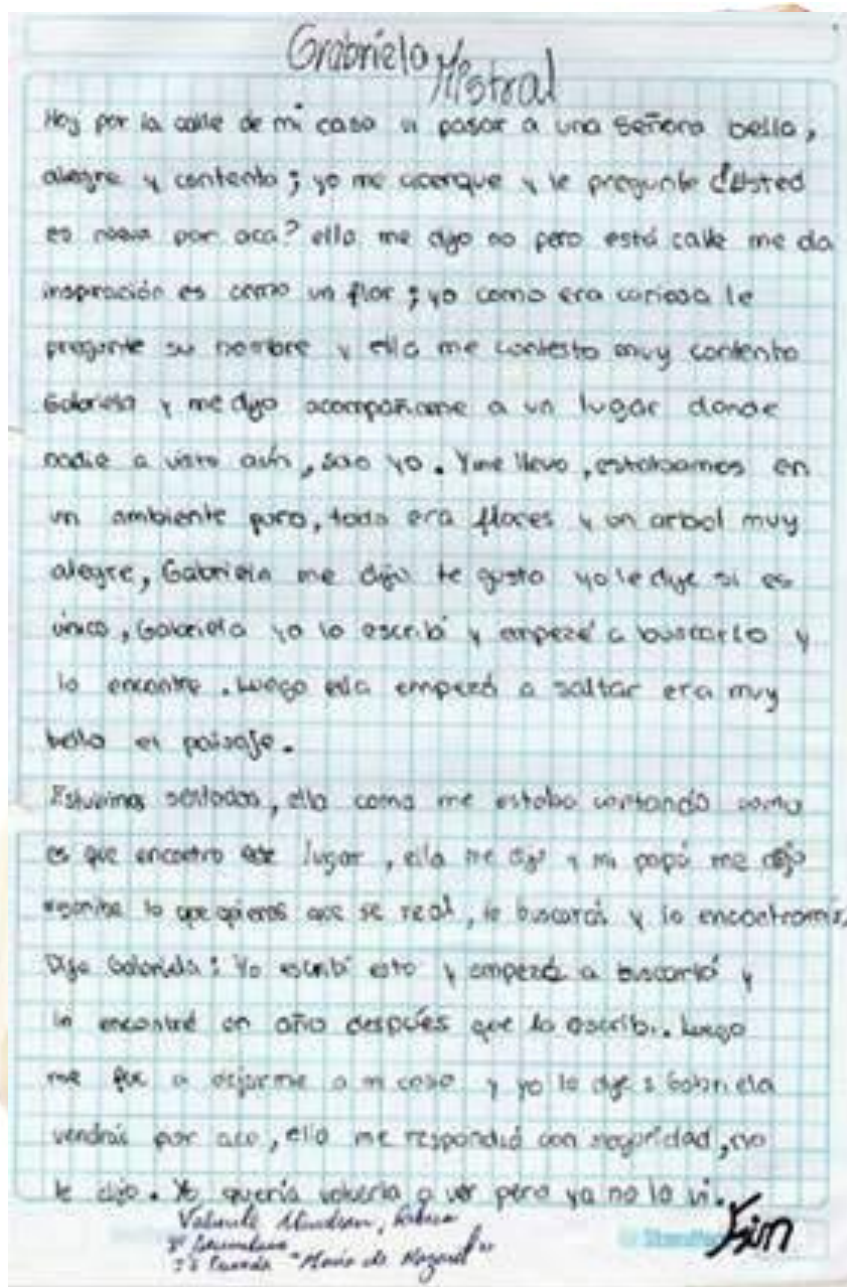 Grabriela Mistral
Hoy por la calle de mi casa vi pasar a una señora bella,
alegre y contenta; yo me acerque y le pregunte ¿Usted
es nueva por aca? ella me dijo no pero está calle me da
inspiración es como un flor; yo como era curiosa le
pregunte su nombre y ella me contesto muy contenta
Gabriela y me dijo acompáñame a un lugar donde
nadie a visto aún, solo yo. Y me llevo, estabamos en
un ambiente puro, todo era flores y un arbol muy
alegre, Gabriela me dijo te gusto yo le dije si es
único, Gabriela yo lo escribí y empezé a buscarlo y
lo encontre. Luego ella empezó a saltar era muy
bello el paisaje.
Estuvimos sentadas, ella como me estaba contando como
es que encontro este lugar, ella me dijo y mi papá me dijo
escribe lo que quieras que se real, lo buscarás y lo encontrarás.
Dijo Gabriela: Yo escribí esto y empezé a buscarló y
lo encontré un año despúes que lo escribi. Luego
me fue a dejarme a mi casa y yo le dije: Gabriela
vendrás por aca, ella me respondió con seguridad, no
le dijo. Yo quería volverla a ver pero ya no la vi.
Fin
"María de Nazaret"